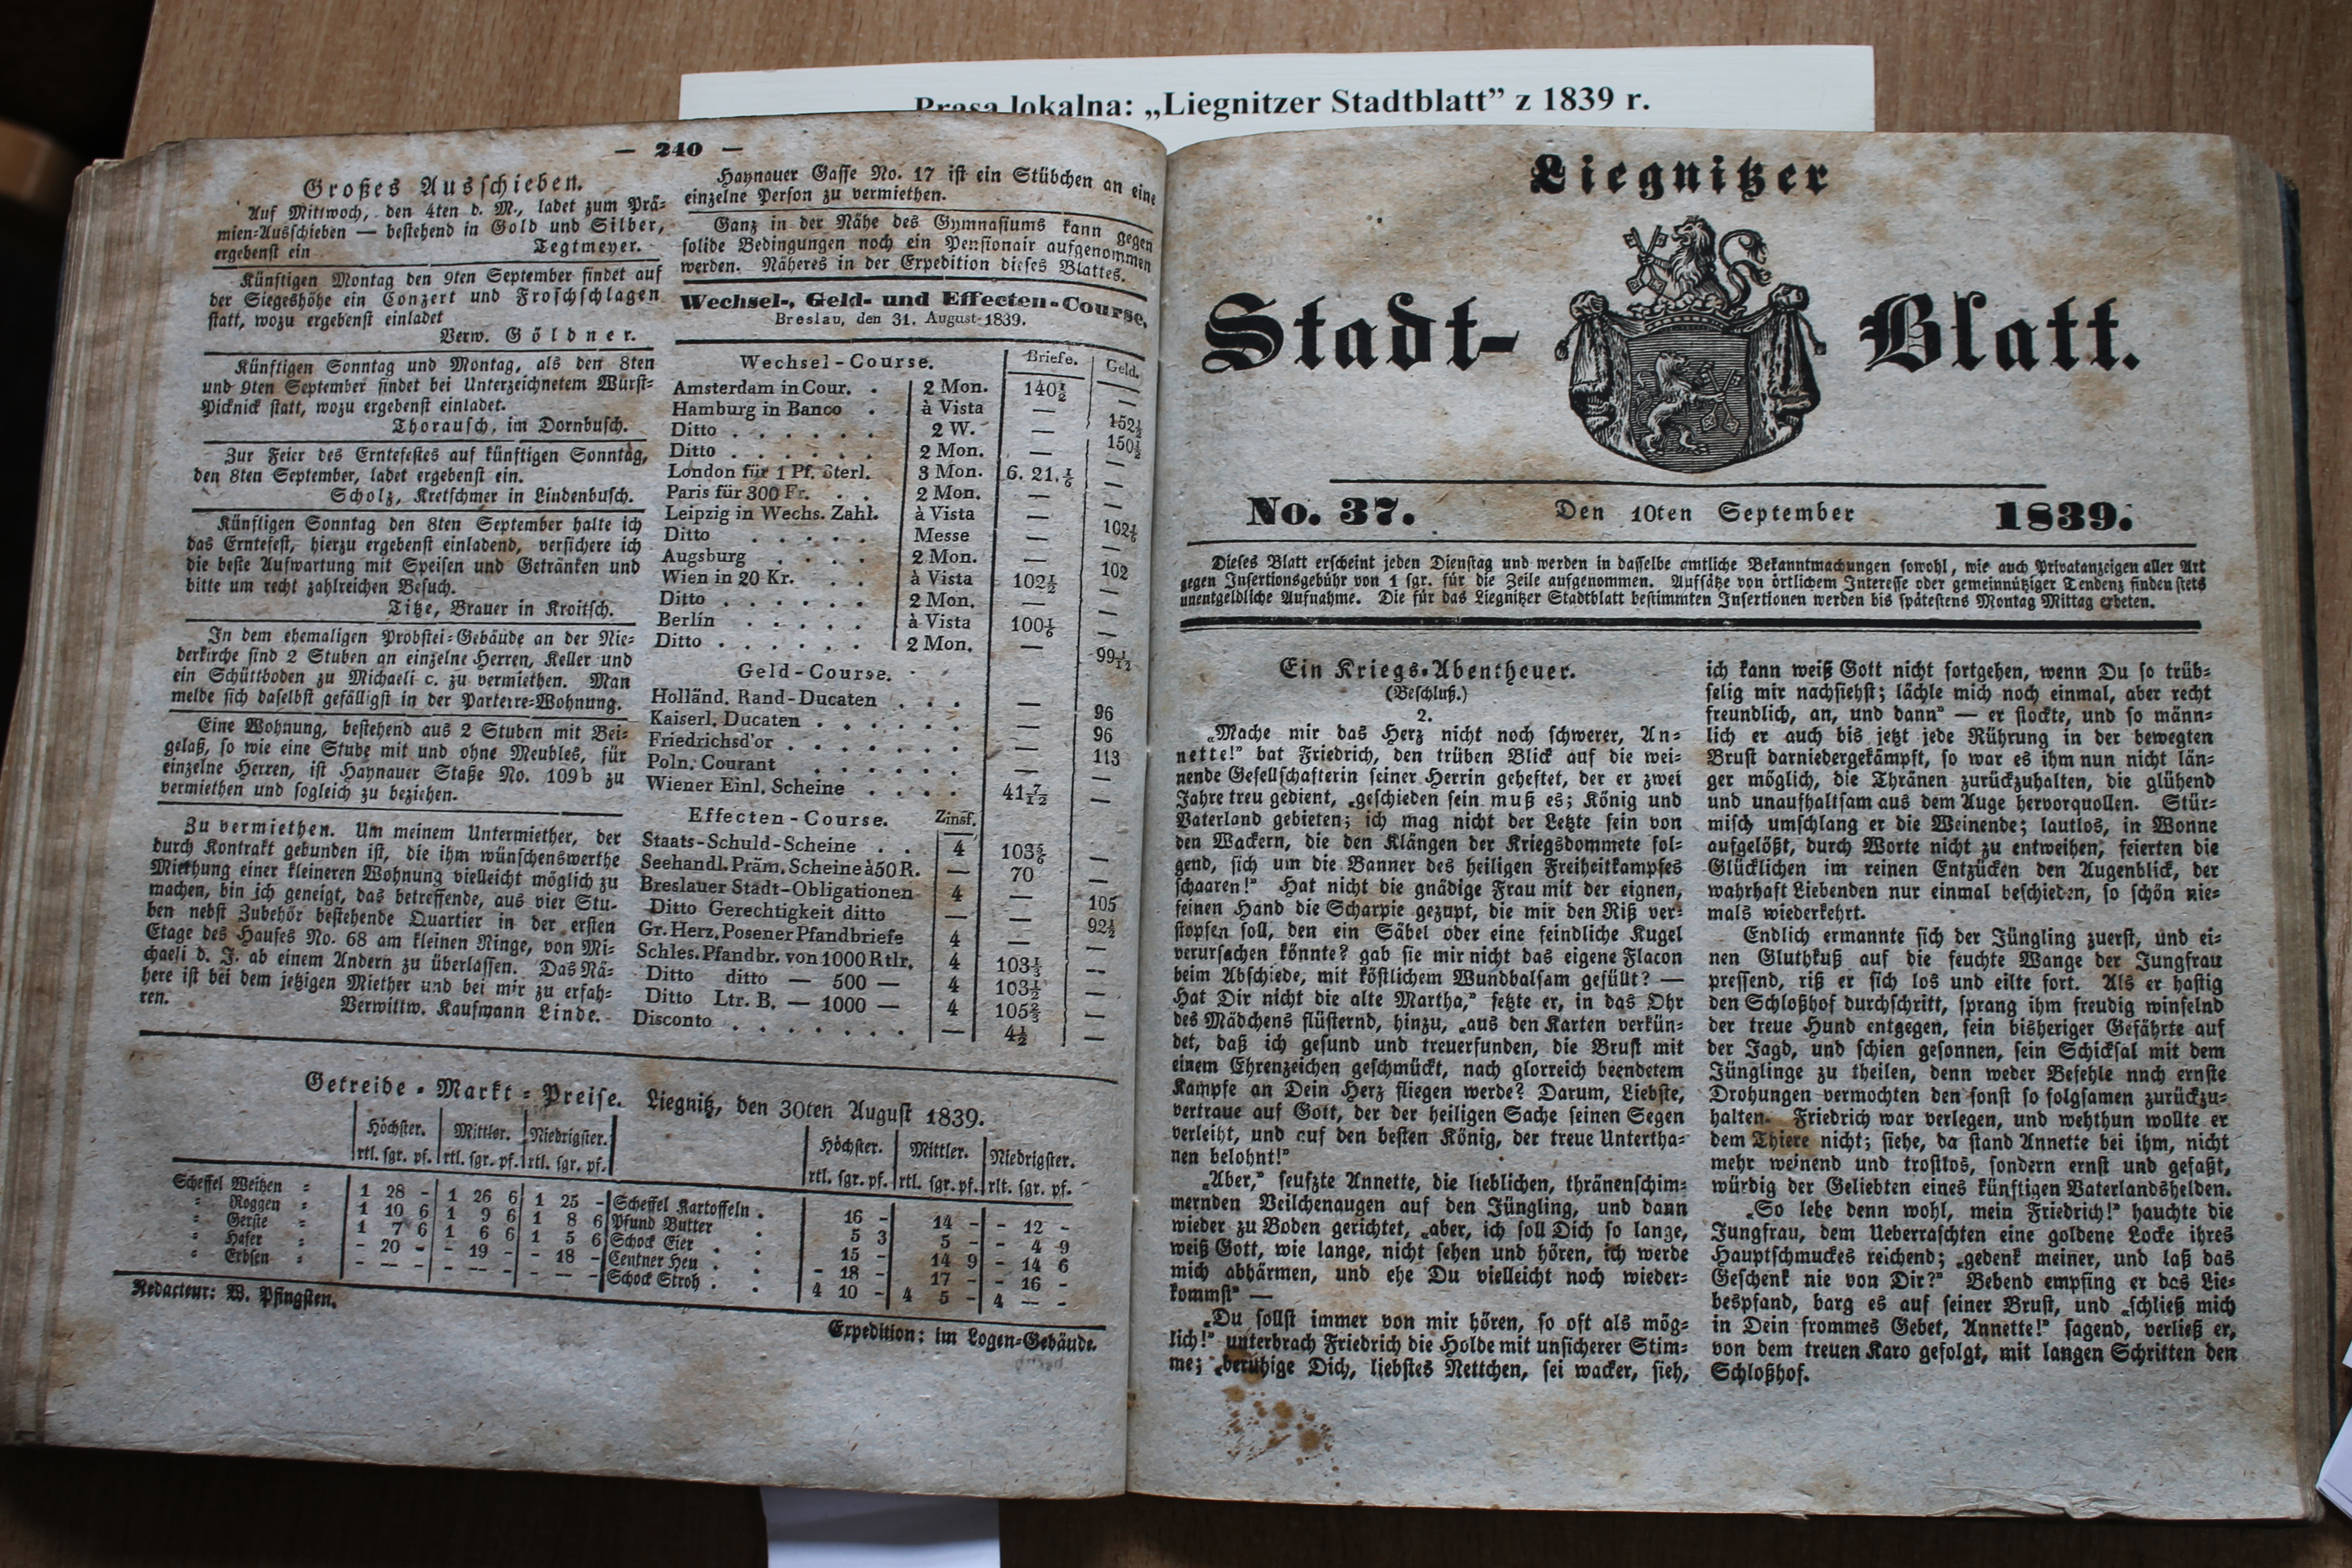 Prasa lokalna: „Liegnitzer Stadtblatt” z 1839 r.
— 240 —
Großes Ausschieben.
Auf Mittwoch, den 4ten d. M., ladet zum Prä-
mien-Ausschieben — bestehend in Gold und Silber,
ergebenst ein Tegtmeyer.
Künftigen Montag den 9ten September findet auf
der Siegeshöhe ein Conzert und Froschschlagen
statt, wozu ergebenst einladet
Verw. Göldner.
Künftigen Sonntag und Montag, als den 8ten
und 9ten September findet bei Unterzeichnetem Wurst-
Picknick statt, wozu ergebenst einladet.
Thorausch, im Dornbusch.
Zur Feier des Erntefestes auf künftigen Sonntag,
den 8ten September, ladet ergebenst ein.
Scholz, Kretschmer in Lindenbusch.
Künftigen Sonntag den 8ten September halte ich
das Erntefest, hierzu ergebenst einladend, versichere ich
die beste Aufwartung mit Speisen und Getränken und
bitte um recht zahlreichen Besuch.
Titze, Brauer in Kroitsch.
In dem ehemaligen Probstei-Gebäude an der Nie-
derkirche sind 2 Stuben an einzelne Herren, Keller und
ein Schüttboden zu Michaeli c. zu vermiethen. Man
melde sich daselbst gefälligst in der Parterre-Wohnung.
Eine Wohnung, bestehend aus 2 Stuben mit Bei-
gelaß, so wie eine Stube mit und ohne Meubles, für
einzelne Herren, ist Haynauer Staße No. 109b zu
vermiethen und sogleich zu beziehen.
Zu vermiethen. Um meinem Untermiether, der
durch Kontrakt gebunden ist, die ihm wünschenswerthe
Miethung einer kleineren Wohnung vielleicht möglich zu
machen, bin ich geneigt, das betreffende, aus vier Stu-
ben nebst Zubehör bestehende Quartier in der ersten
Etage des Hauses No. 68 am kleinen Ringe, von Mi-
chaeli d. J. ab einem Andern zu überlassen. Das Nä-
here ist bei dem jetzigen Miether und bei mir zu erfah-
ren. Verwittw. Kaufmann Linde.
Haynauer Gasse No. 17 ist ein Stübchen an eine
einzelne Person zu vermiethen.
Ganz in der Nähe des Gymnasiums kann gegen
solide Bedingungen noch ein Pensionair aufgenommen
werden. Näheres in der Expedition dieses Blattes.
Wechsel-, Geld- und Effecten-Course.
Breslau, den 31. August 1839.
Wechsel-Course. Briefe. Geld.
Amsterdam in Cour. . 2 Mon. 140½ —
Hamburg in Banco . à Vista — 152½
Ditto . . . . . . 2 W. — 150½
Ditto . . . . . . 2 Mon. — —
London für 1 Pf. Sterl. 3 Mon. 6. 21.⅙ —
Paris für 300 Fr. . . 2 Mon. — —
Leipzig in Wechs. Zahl. à Vista — 102⅙
Ditto . . . . . Messe — —
Augsburg . . . . 2 Mon. — 102
Wien in 20 Kr. . . à Vista 102½ —
Ditto . . . . . . 2 Mon. — —
Berlin . . . . . à Vista 100⅙ —
Ditto . . . . . . 2 Mon. — 99 1/12
Geld-Course.
Holländ. Rand-Ducaten . . . — 96
Kaiserl. Ducaten . . . . . . — 96
Friedrichsd'or . . . . . . . — 113
Poln. Courant . . . . . . — —
Wiener Einl. Scheine . . . . 41 7/12 —
Effecten-Course. Zinsf.
Staats-Schuld-Scheine . . 4 103⅚ —
Seehandl. Präm. Scheine à 50 R. — 70 —
Breslauer Stadt-Obligationen 4 — 105
Ditto Gerechtigkeit ditto — — 92½
Gr. Herz. Posener Pfandbriefe 4 — —
Schles. Pfandbr. von 1000 Rtlr. 4 103½ —
Ditto ditto — 500 — 4 103½ —
Ditto Ltr. B. — 1000 — 4 105⅔ —
Disconto . . . . . . . — 4½ —
Getreide-Markt-Preise. Liegnitz, den 30ten August 1839.
Höchster. Mittler. Niedrigster. Höchster. Mittler. Niedrigster.
rtl. sgr. pf. rtl. sgr. pf. rtl. sgr. pf. rtl. sgr. pf. rtl. sgr. pf. rlt. sgr. pf.
Scheffel Weitzen = 1 28 - 1 26 6 1 25 - Scheffel Kartoffeln . 16 - 14 - - 12 -
= Roggen = 1 10 6 1 9 6 1 8 6 Pfund Butter 5 3 5 - - 4 9
= Gerste = 1 7 6 1 6 6 1 5 6 Schock Eier . . 15 - 14 9 - 14 6
= Hafer = - 20 - - 19 - - 18 - Centner Heu . . - 18 - 17 - - 16 -
= Erbsen = - — - - — - - — - Schock Stroh . . 4 10 - 4 5 - 4 — -
Redacteur: W. Pfingsten.
Expedition: im Logen-Gebäude.
Liegnitzer
Stadt-Blatt.
No. 37. Den 10ten September 1839.
Dieses Blatt erscheint jeden Dienstag und werden in dasselbe amtliche Bekanntmachungen sowohl, wie auch Privatanzeigen aller Art
gegen Insertionsgebühr von 1 sgr. für die Zeile aufgenommen. Aufsätze von örtlichem Interesse oder gemeinnütziger Tendenz finden stets
unentgeldliche Aufnahme. Die für das Liegnitzer Stadtblatt bestimmten Insertionen werden bis spätestens Montag Mittag erbeten.
Ein Kriegs-Abentheuer.
(Beschluß.)
2.
„Mache mir das Herz nicht noch schwerer, An-
nette!” bat Friedrich, den trüben Blick auf die wei-
nende Gesellschafterin seiner Herrin geheftet, der er zwei
Jahre treu gedient, „geschieden sein muß es; König und
Vaterland gebieten; ich mag nicht der Letzte sein von
den Wackern, die den Klängen der Kriegsdommete fol-
gend, sich um die Banner des heiligen Freiheitkampfes
schaaren!” Hat nicht die gnädige Frau mit der eignen,
feinen Hand die Scharpie gezupt, die mir den Riß ver-
stopfen soll, den ein Säbel oder eine feindliche Kugel
verursachen könnte? gab sie mir nicht das eigene Flacon
beim Abschiede, mit köstlichem Wundbalsam gefüllt? —
Hat Dir nicht die alte Martha,” setzte er, in das Ohr
des Mädchens flüsternd, hinzu, „aus den Karten verkün-
det, daß ich gesund und treuerfunden, die Brust mit
einem Ehrenzeichen geschmückt, nach glorreich beendetem
Kampfe an Dein Herz fliegen werde? Darum, Liebste,
vertraue auf Gott, der der heiligen Sache seinen Segen
verleiht, und auf den besten König, der treue Untertha-
nen belohnt!”
„Aber,” seufzte Annette, die lieblichen, thränenschim-
mernden Veilchenaugen auf den Jüngling, und dann
wieder zu Boden gerichtet, „aber, ich soll Dich so lange,
weiß Gott, wie lange, nicht sehen und hören, ich werde
mich abhärmen, und ehe Du vielleicht noch wieder-
kommst” —
„Du sollst immer von mir hören, so oft als mög-
lich!” unterbrach Friedrich die Holde mit unsicherer Stim-
me; „beruhige Dich, liebstes Nettchen, sei wacker, sieh,
ich kann weiß Gott nicht fortgehen, wenn Du so trüb-
selig mir nachsiehst; lächle mich noch einmal, aber recht
freundlich, an, und dann” — er stockte, und so männ-
lich er auch bis jetzt jede Rührung in der bewegten
Brust darniedergekämpft, so war es ihm nun nicht län-
ger möglich, die Thränen zurückzuhalten, die glühend
und unaufhaltsam aus dem Auge hervorquollen. Stür-
misch umschlang er die Weinende; lautlos, in Wonne
aufgelößt, durch Worte nicht zu entweihen, feierten die
Glücklichen im reinen Entzücken den Augenblick, der
wahrhaft Liebenden nur einmal beschieden, so schön nie-
mals wiederkehrt.
Endlich ermannte sich der Jüngling zuerst, und ei-
nen Gluthkuß auf die feuchte Wange der Jungfrau
pressend, riß er sich los und eilte fort. Als er hastig
den Schloßhof durchschritt, sprang ihm freudig winselnd
der treue Hund entgegen, sein bisheriger Gefährte auf
der Jagd, und schien gesonnen, sein Schicksal mit dem
Jünglinge zu theilen, denn weder Befehle nnch ernste
Drohungen vermochten den sonst so folgsamen zurückzu-
halten. Friedrich war verlegen, und wehthun wollte er
dem Thiere nicht; siehe, da stand Annette bei ihm, nicht
mehr weinend und trostlos, sondern ernst und gefaßt,
würdig der Geliebten eines künftigen Vaterlandshelden.
„So lebe denn wohl, mein Friedrich!” hauchte die
Jungfrau, dem Ueberraschten eine goldene Locke ihres
Hauptschmuckes reichend; „gedenk meiner, und laß das
Geschenk nie von Dir?” Bebend empfing er das Lie-
bespfand, barg es auf seiner Brust, und „schließ mich
in Dein frommes Gebet, Annette!” sagend, verließ er,
von dem treuen Karo gefolgt, mit langen Schritten den
Schloßhof.